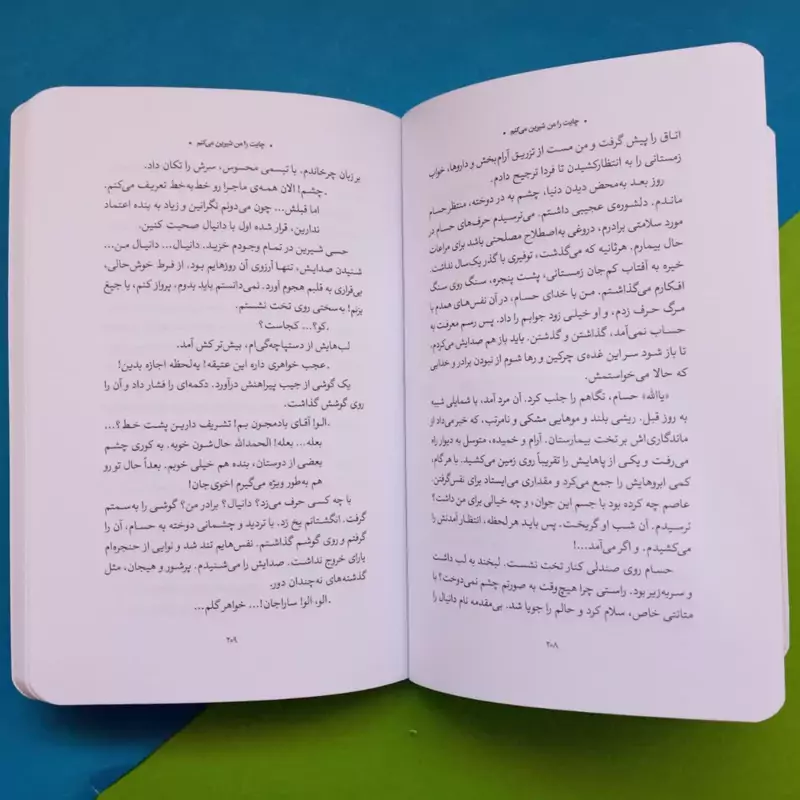 • چایت را من شیرین می‌کنم •
اتاق را پیش گرفت و من مست از تزریق آرام‌بخش و داروها، خواب
زمستانی را به انتظارکشیدن تا فردا ترجیح دادم.
روز بعد به‌محض دیدن دنیا، چشم به در دوخته، منتظر حسام
ماندم. دلشوره‌ی عجیبی داشتم. می‌ترسیدم حرف‌های حسام در
مورد سلامتی برادرم، دروغی به‌اصطلاح مصلحتی باشد برای مراعات
حال بیمارم. هرثانیه که می‌گذشت، توفیری با گذر یک‌سال نداشت.
خیره به آفتاب کم‌جان زمستانی، پشت پنجره، سنگ روی سنگ
افکارم می‌گذاشتم. من با خدای حسام، در آن نفس‌های همدم با
مرگ حرف زدم، و او خیلی زود جوابم را داد. پس رسم معرفت به
حساب نمی‌آمد، گذاشتن و گذشتن. باید باز هم صدایش می‌کردم.
تا باز شود سر این غده‌ی چرکین و رها شوم از نبودن برادر و خدایی
که حالا می‌خواستمش.
«یاالله» حسام، نگاهم را جلب کرد. آن مرد آمد، با شمایلی شبیه
به روز قبل. ریشی بلند و موهایی مشکی و نامرتب، که خبر می‌داد از
ماندگاری‌اش بر تخت بیمارستان. آرام و خمیده، متوسل به دیوار راه
می‌رفت و یکی از پاهایش را تقریباً روی زمین می‌کشید. با هر گام،
کمی ابروهایش را جمع می‌کرد و مقداری می‌ایستاد برای نفس‌گرفتن.
عاصم چه کرده بود با جسم این جوان، و چه خیالی برای من داشت؟
ترسیدم. آن شب او گریخت. پس باید هر لحظه، انتظار آمدنش را
می‌کشیدم. و اگر می‌آمد...!
حسام روی صندلی کنار تخت نشست. لبخند به لب داشت
و سربه‌زیر بود. راستی چرا هیچ‌وقت به صورتم چشم نمی‌دوخت؟ با
متانتی خاص، سلام کرد و حالم را جویا شد. بی‌مقدمه نام دانیال را
۲۰۸
• چایت را من شیرین می‌کنم •
بر زبان چرخاندم. با تبسمی محسوس، سرش را تکان داد.
.چشم! الان همه‌ی ماجرا رو خط‌به‌خط تعریف می‌کنم.
اما قبلش... چون می‌دونم نگرانین و زیاد به بنده اعتماد
ندارین، قرار شده اول با دانیال صحبت کنین.
حسی شیرین در تمام وجودم خزید. دانیال... دانیال من...
شنیدن صدایش، تنها آرزوی آن روزهایم بود. از فرط خوش‌حالی،
بی‌قراری به قلبم هجوم آورد. نمی‌دانستم باید بدوم، پرواز کنم، یا جیغ
بزنم! به‌سختی روی تخت نشستم.
.کو؟... کجاست؟
لب‌هایش از دستپاچه‌گی‌ام، بیش‌تر کش آمد.
.عجب خواهری داره این عتیقه! یه‌لحظه اجازه بدین!
یک گوشی از جیب پیراهنش درآورد. دکمه‌ای را فشار داد و آن را
روی گوشش گذاشت.
.الو! آقای بادمجون بم! تشریف دارین پشت خط؟...
بعله... بعله! الحمدالله حال‌شون خوبه. به کوری چشم
بعضی از دوستان، بنده هم خیلی خوبم. بعداً حال تو رو
هم به‌طور ویژه می‌گیرم اخوی‌جان!
با چه کسی حرف می‌زد؟ دانیال؟ برادر من؟ گوشی را به‌سمتم
گرفت. انگشتانم یخ زد. با تردید و چشمانی دوخته به حسام، آن را
گرفتم و روی گوشم گذاشتم. نفس‌هایم تند شد و نوایی از حنجره‌ام
یارای خروج نداشت. صدایش را می‌شنیدم. پرشور و هیجان، مثل
گذشته‌های نه‌چندان دور.
.الو، الو! ساراجان!... خواهر گلم...
۲۰۹